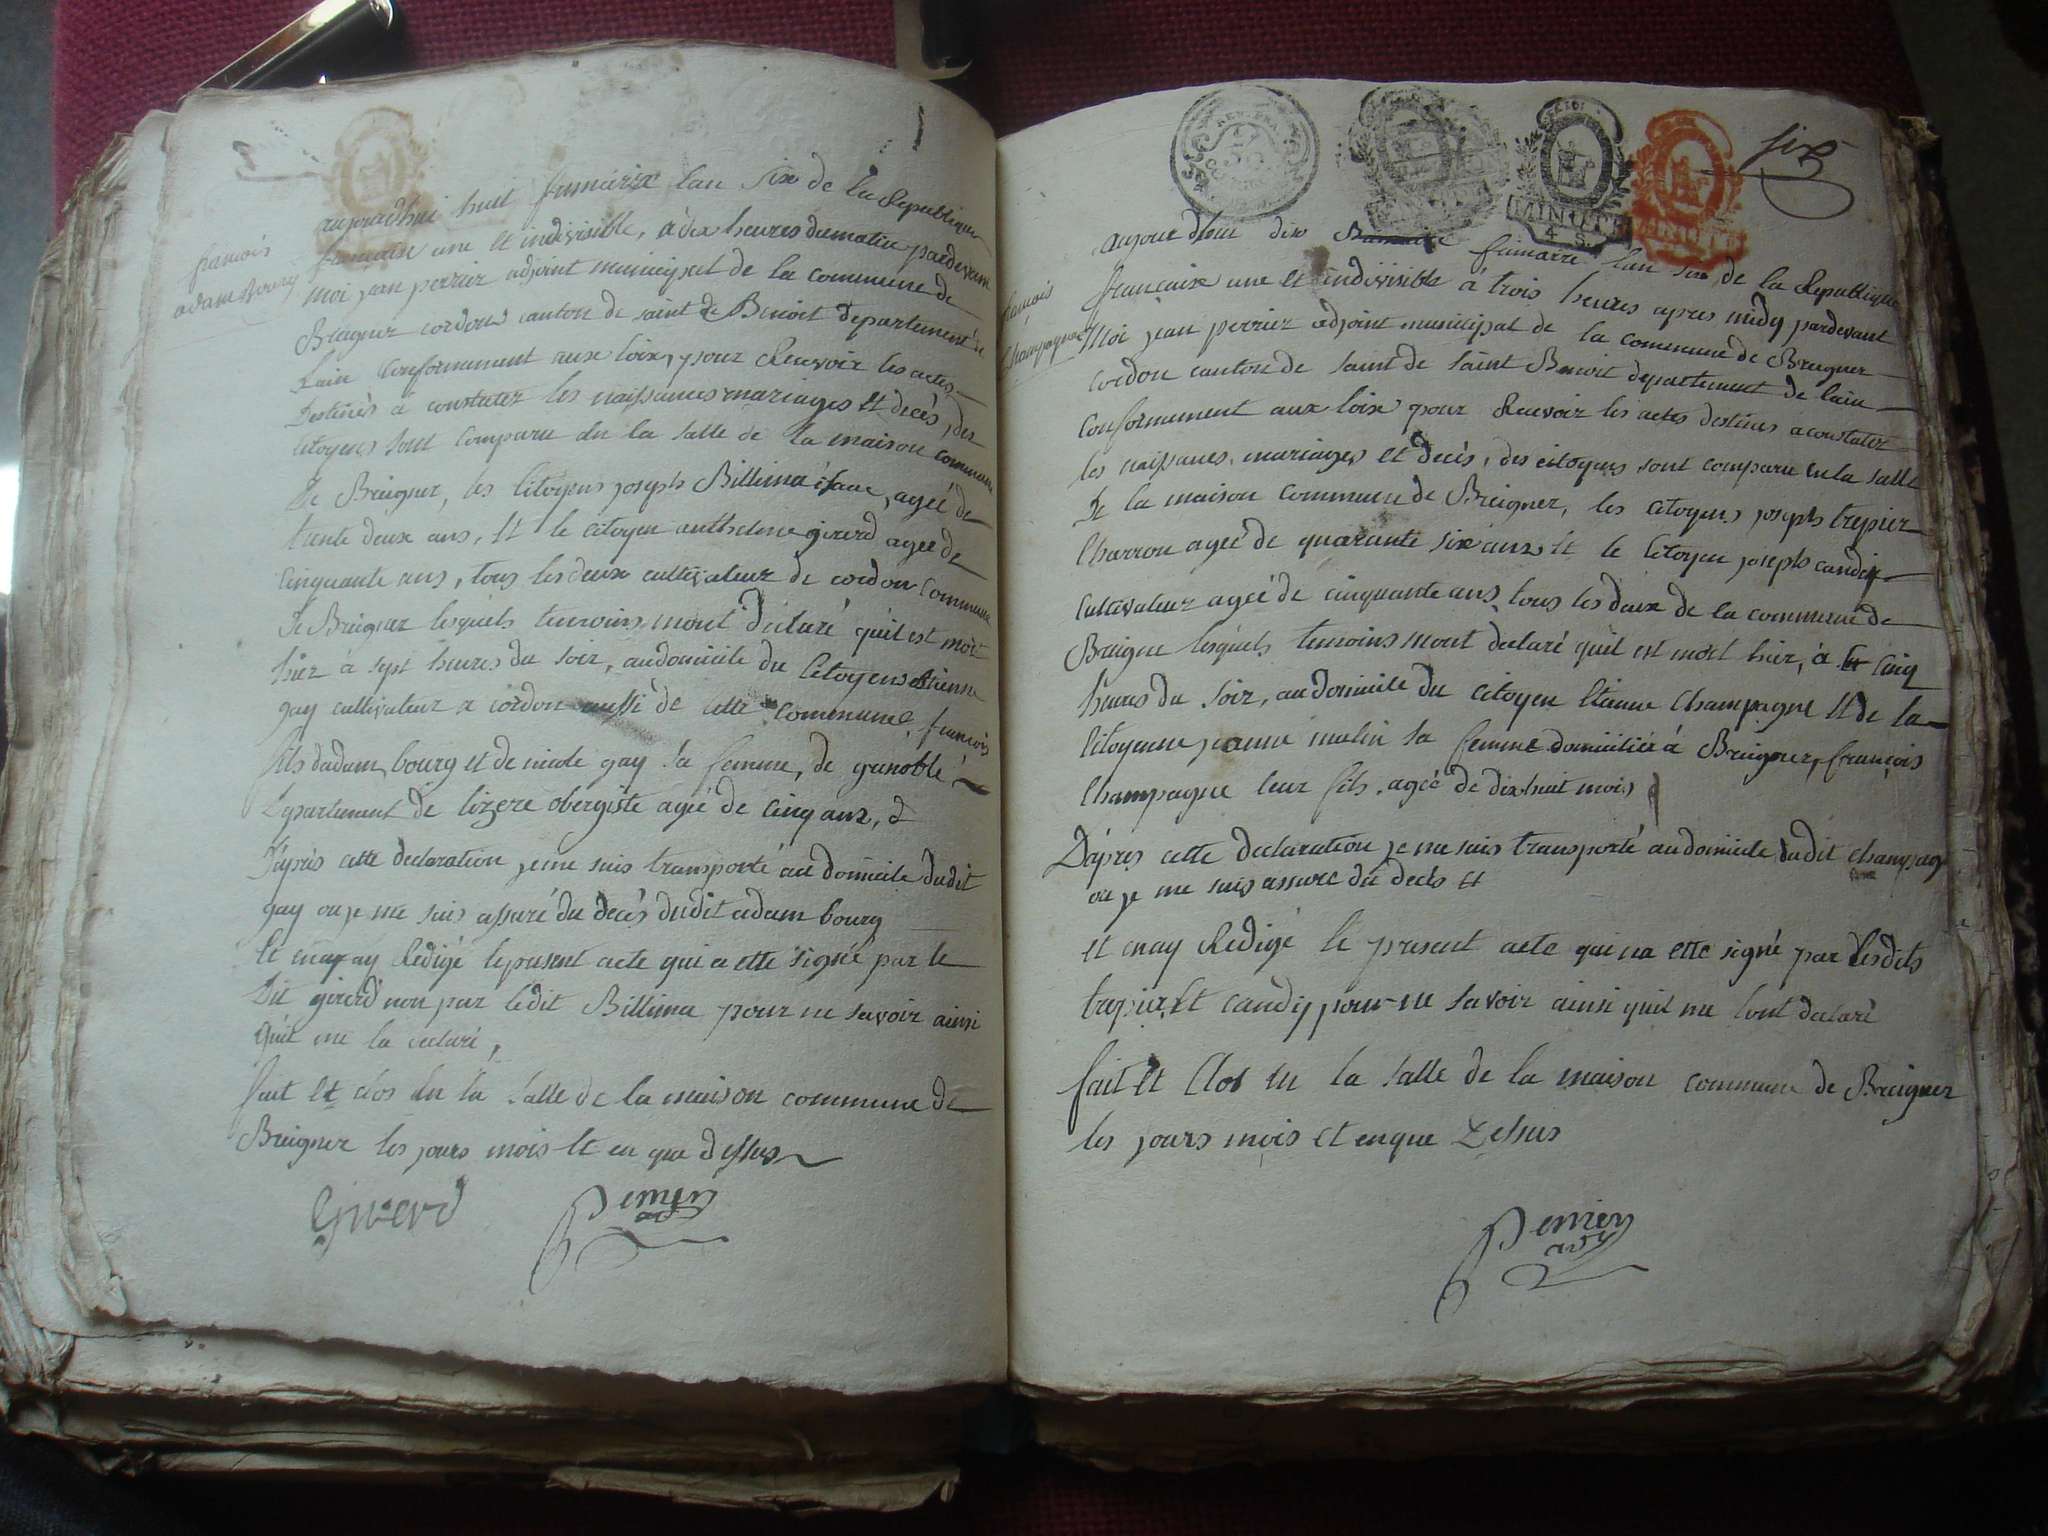 françois
adam bourg
aujourdhui huit frimaire lan six de la Republique
française une et indivisible, à dix heures du matin pardevant
moi jean perrier adjoint municipal de la commune de
Breigner cordon canton de saint de Benoit departement de
lain conformement aux loix, pour Recevoir les actes
Destinés a constater les naissances mariages et decès, des
citoyens sont comparu en la salle de la maison commune
de Breigner, les citoyens joseph Billima agée de
trente deux ans, et le citoyen anthelme girerd agée de
cinquante ans, tous les deux cultivateur de cordon commune
de Breigner lesquels temoins mont déclaré quil est mort
hier à sept heures du soir, au domicile du citoyen etienne
gay cultivateur a cordon aussi de cette commune, françois
fils dadam bourg et de nicole gay sa femme, de grenoble
Departement de lizere obergiste agée de cinq ans, &
D'après cette declaration je me suis transporté au domicile dudit
gay ou je me suis assuré du decès dudit adam bourg
et ay Rédigé le present acte qui a etté signé par le
Dit girerd non par ledit Billima pour ne savoir ainsi
quil me la declaré,
fait et clos en la salle de la maison commune de
Breigner les jours mois et en que dessus
Girerd
Perrier
adj
six
MINUTE
4 S.
françois
champagne
aujourdhui dix frimaire lan six de la Republique
française une et indivisible à trois heures apres midy pardevant
Moi jean perrier adjoint municipal de la commune de Breigner
cordon canton de saint de saint Benoit departement de lain
conformement aux loix pour Recevoir les actes destinés a constater
les naissances, mariages et decès, des citoyens sont comparu en la salle
de la maison commune de Breigner, les citoyens joseph trepier
charron agée de quarante six ans et le citoyen joseph candy
cultivateur agée de cinquante ans, tous les deux de la commune de
Breigner lesquels temoins mont declaré quil est mort hier, à cinq
heures du soir, au domicile du citoyen etienne champagne et de la
citoyenne jeanne mulin sa femme domiciliée à Breigner, françois
champagne leur fils, agée de dix huit mois
D'apres cette declaration je me suis transporté au domicile dudit champagne
ou je me suis assuré du decès et
et en ay Redigé le present acte qui na etté signé par lesdits
trepier et candy pour ne savoir ainsi quil me lont declaré
fait et clos en la salle de la maison commune de Breigner
les jours mois et en que Dessus
Perrier
adj